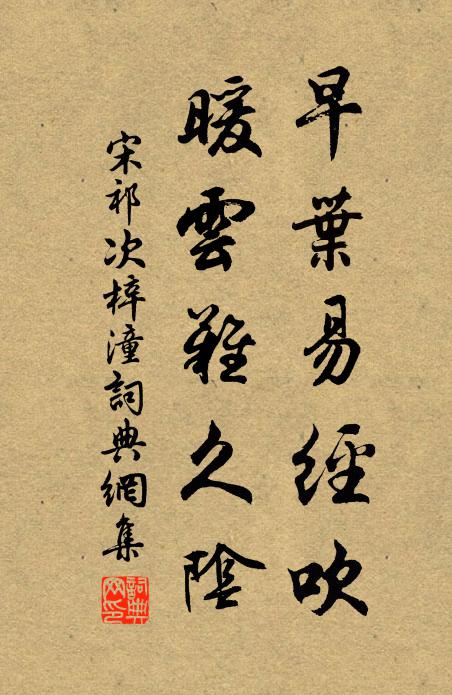 早葉易經吹
暖雲難久陰
宋祁次梓潼詞典網集
詞典網印